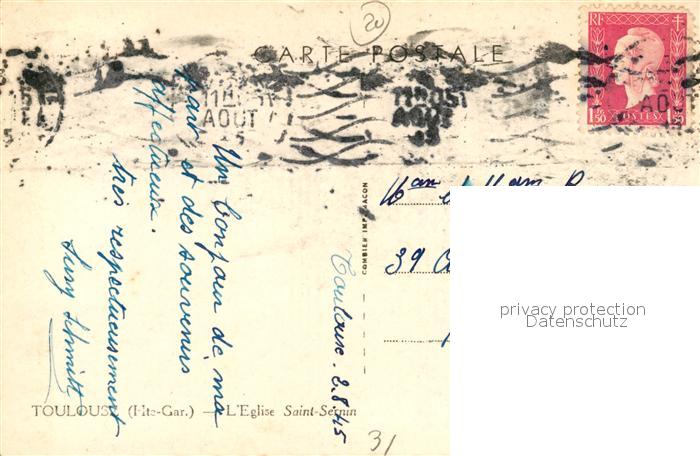 20
CARTE POSTALE
RF
1F50 POSTES 1F50
11H
AOUT
45
AOUT
45
Un bonjour de ma
part et des souvenirs
affectueux.
très respectueusement
Susy Schmitt
Toulouse. 2.8.45
COMBIER IMP. MACON
39
privacy protection
Datenschutz
TOULOUSE (Hte-Gar.) — L'Eglise Saint-Sernin
31